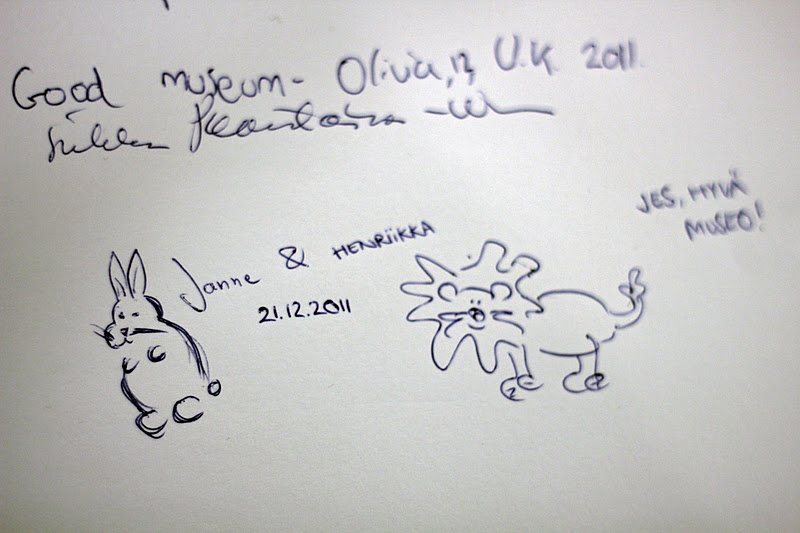 Good museum - Olivia, 13, U.K 2011.
JES, HYVÄ
MUSEO!
Janne & HENRIIKKA
21.12.2011